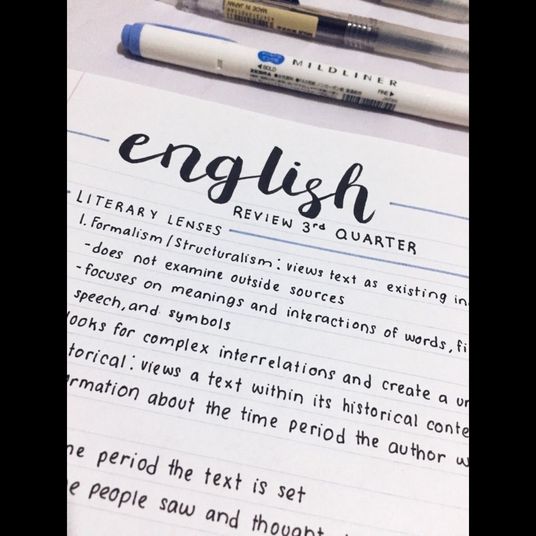 MADE IN JAPAN
MILDLINER
◀BOLD
ZEBRA
FINE▶
english
REVIEW 3rd QUARTER
LITERARY LENSES
1. Formalism/Structuralism: views text as existing in
-does not examine outside sources
-focuses on meanings and interactions of words, fi
speech, and symbols
looks for complex interrelations and create a un
torical: views a text within its historical conte
ormation about the time period the author w
me period the text is set
e people saw and thought